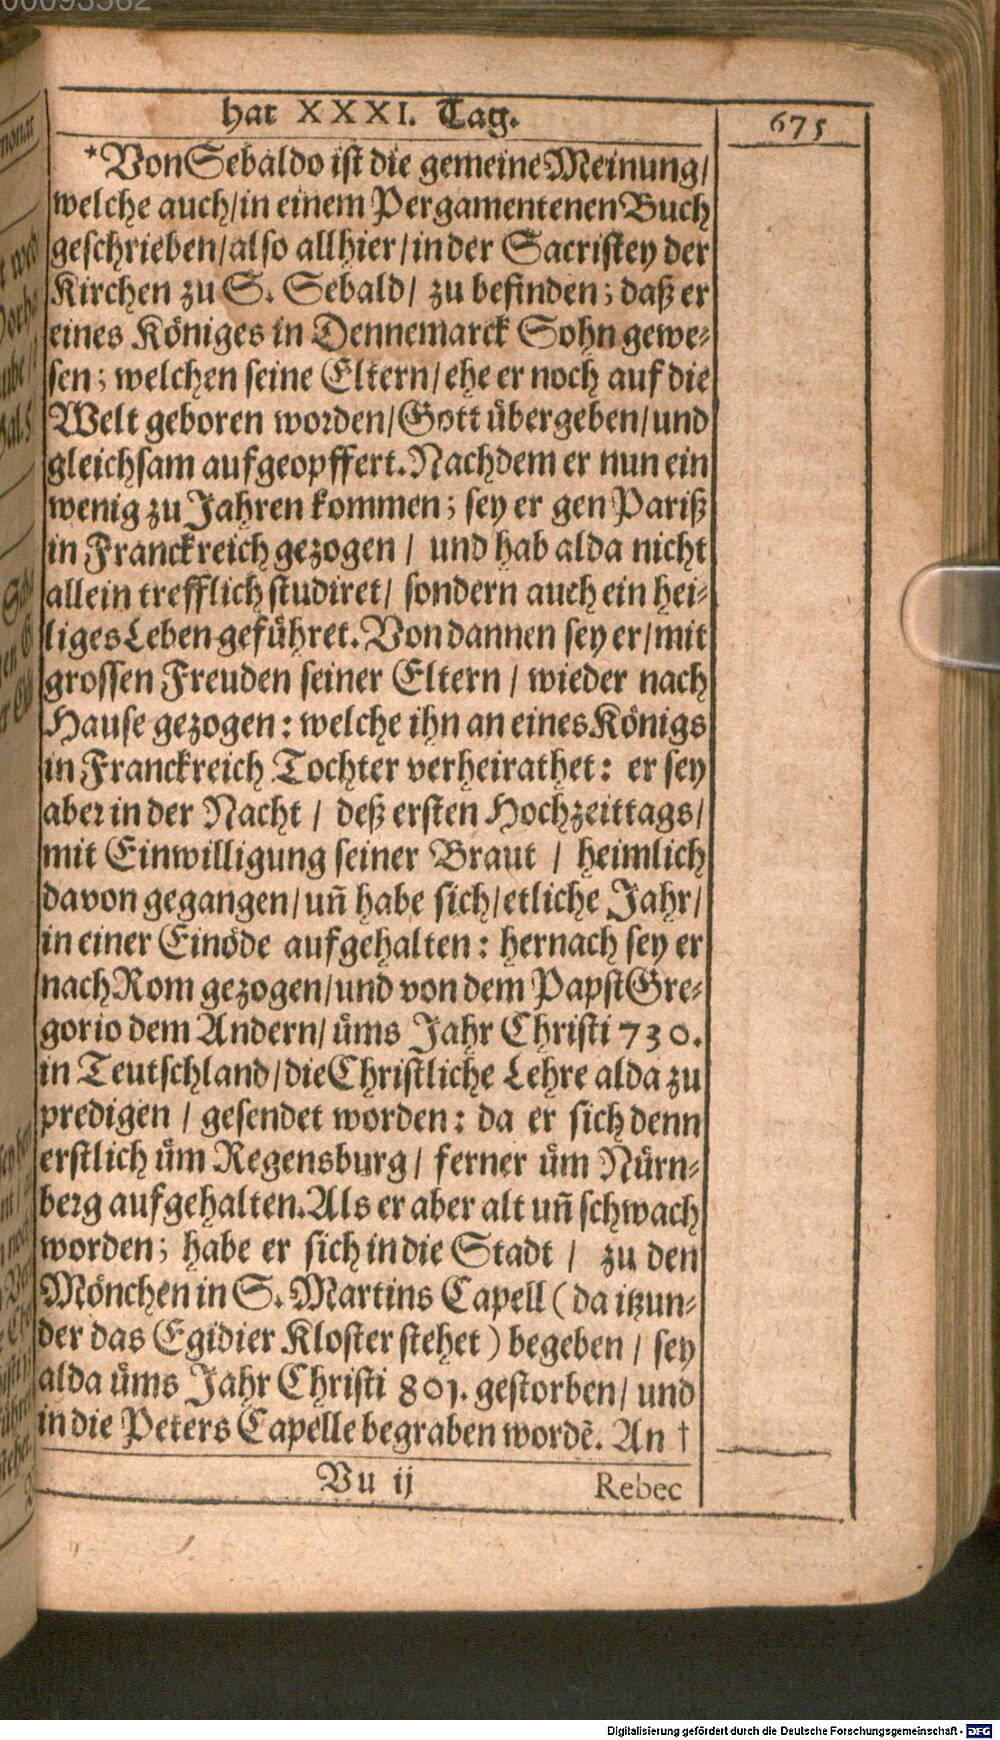 00093562
hat XXXI. Tag.
675
*Von Sebaldo ist die gemeine Meinung/
welche auch/in einem Pergamentenen Buch
geschrieben/also allhier/in der Sacristey der
Kirchen zu S. Sebald/ zu befinden; daß er
eines Königes in Dennemarck Sohn gewe-
sen; welchen seine Eltern/ehe er noch auf die
Welt geboren worden/Gott übergeben/und
gleichsam aufgeopffert. Nachdem er nun ein
wenig zu Jahren kommen; sey er gen Pariß
in Franckreich gezogen / und hab alda nicht
allein trefflich studiret/ sondern auch ein hei-
liges Leben geführet. Von dannen sey er/mit
grossen Freuden seiner Eltern / wieder nach
Hause gezogen: welche ihn an eines Königs
in Franckreich Tochter verheirathet: er sey
aber in der Nacht / deß ersten Hochzeittags/
mit Einwilligung seiner Braut / heimlich
davon gegangen/uñ habe sich/etliche Jahr/
in einer Einöde aufgehalten: hernach sey er
nach Rom gezogen/und von dem Papst Gre-
gorio dem Andern/ üms Jahr Christi 730.
in Teutschland/die Christliche Lehre alda zu
predigen / gesendet worden: da er sich denn
erstlich üm Regensburg/ ferner üm Nürn-
berg aufgehalten. Als er aber alt uñ schwach
worden; habe er sich in die Stadt / zu den
Mönchen in S. Martins Capell (da itzun-
der das Egidier Kloster stehet) begeben / sey
alda üms Jahr Christi 801. gestorben/ und
in die Peters Capelle begraben wordẽ. An †
Vu ij
Rebec
Digitalisierung gefördert durch die Deutsche Forschungsgemeinschaft - DFG